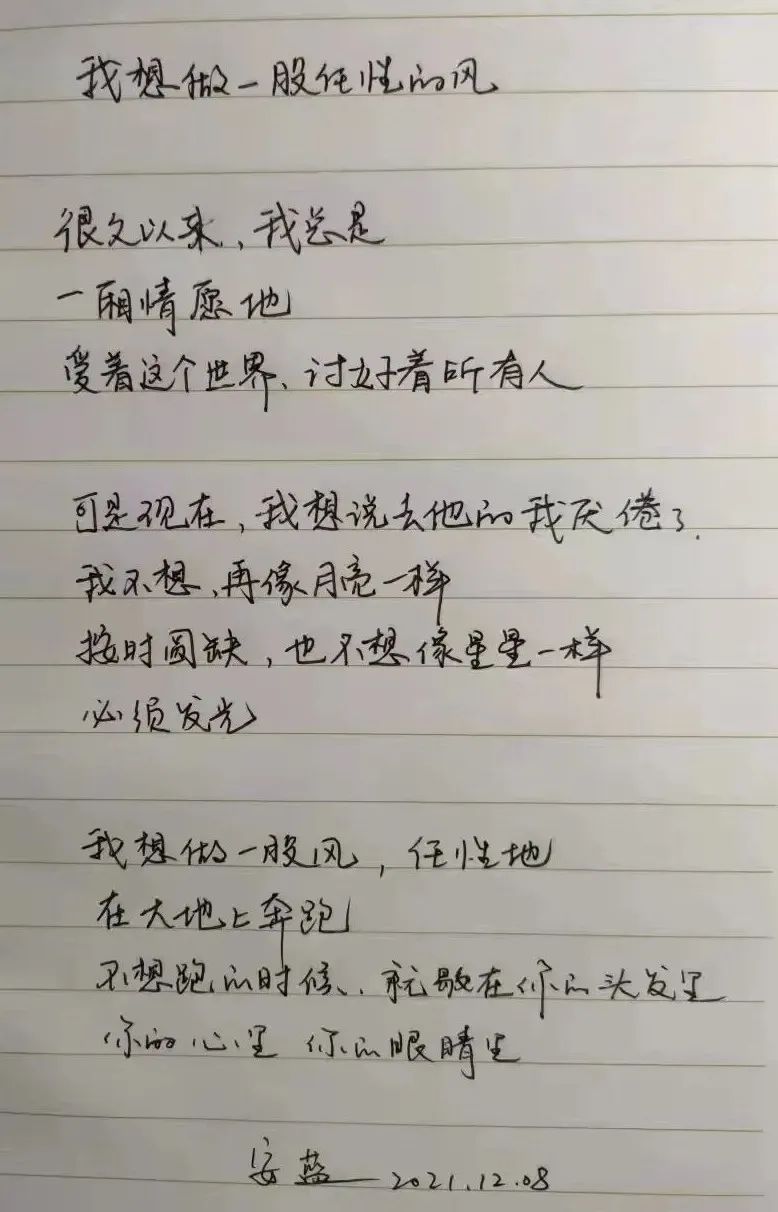 我想做一股任性的风
很久以来，我总是
一厢情愿地
爱着这个世界、讨好着所有人
可是现在，我想说去他的我厌倦了.
我不想、再像月亮一样
按时圆缺，也不想像星星一样
必须发光
我想做一股风，任性地
在大地上奔跑
不想跑的时候、就歇在你的头发里
你的心里 你的眼睛里
安蓝 2021.12.08